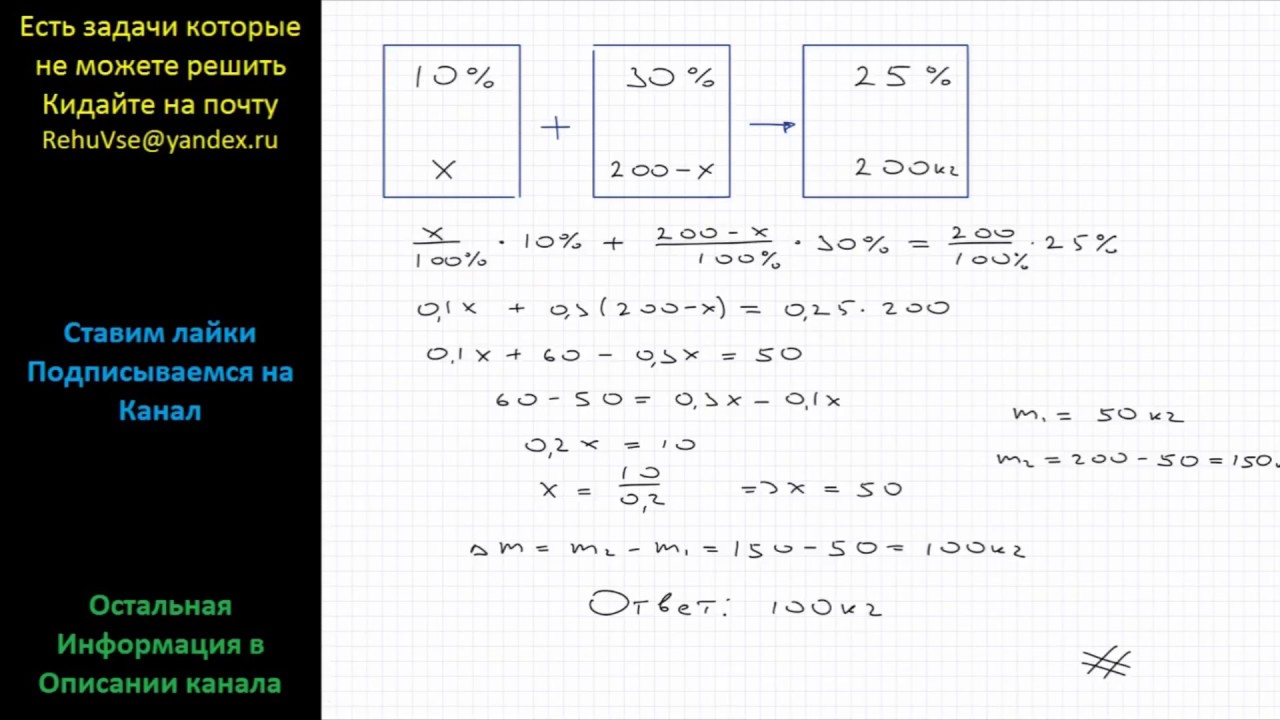 Есть задачи которые
не можете решить
Кидайте на почту
RehuVse@yandex.ru
Ставим лайки
Подписываемся на
Канал
Остальная
Информация в
Описании канала
10% + 30% → 25%
x 200-x 200кг
x/100% · 10% + 200-x/100% · 30% = 200/100% · 25%
0,1x + 0,3(200-x) = 0,25 · 200
0,1x + 60 - 0,3x = 50
60 - 50 = 0,3x - 0,1x
0,2x = 10
x = 10/0,2 => x = 50
m₁ = 50 кг
m₂ = 200 - 50 = 150
Δm = m₂ - m₁ = 150 - 50 = 100кг
Ответ: 100кг